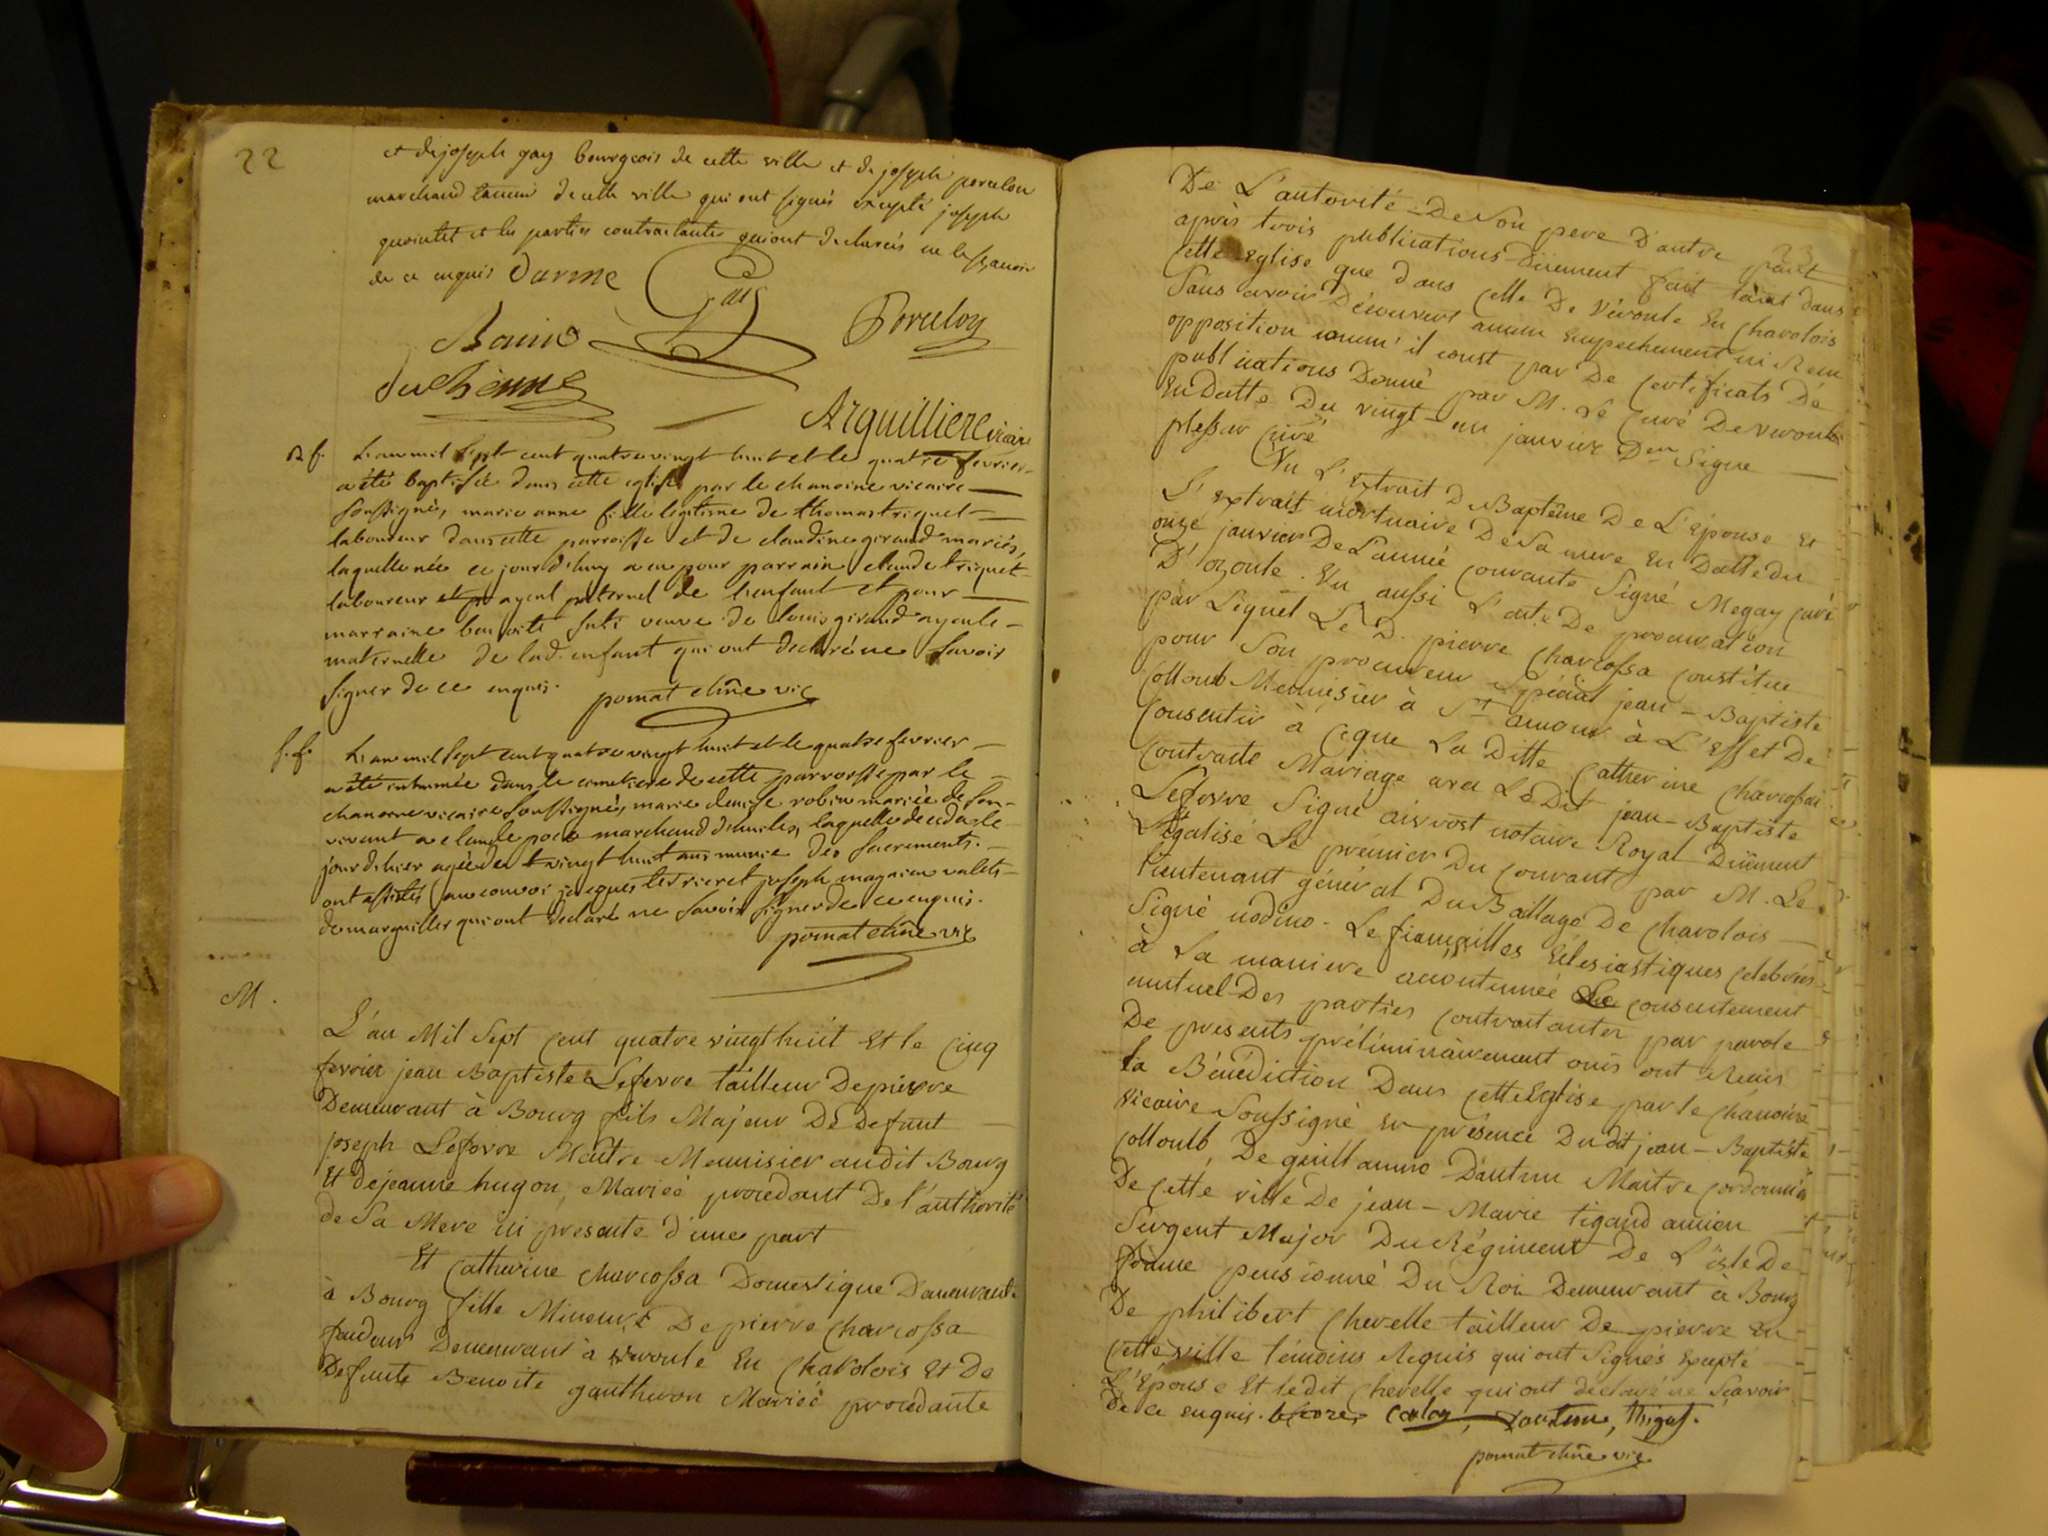 22
et de joseph gay bourgeois de cette ville et de joseph porcelon
marchand taneur de cette ville qui ont signés excepté joseph
et les parties contractantes qui ont declarés ne le scavoir
de ce enquis Durine
Gay
Porceloy
duchenne
Arguilliere vicaire
B. f.
L'an mil sept cent quatre vingt huit et le quatre fevrier
a été baptisée dans cette eglise par le chanoine vicaire
soussigné, marie anne fille legitime de thomas triquet
laboureur dans cette parroisse et de claudine giraud mariés,
laquelle née ce jourd'huy a eu pour parrain claude triquet
laboureur ayeul paternel de l'enfant et pour
marraine benoite juli veuve de louis giraud ayeule
maternelle de lad. enfant qui ont declaré ne savoir
signer de ce enquis. pomat chñe vic
f. f.
L'an mil sept cent quatre vingt huit et le quatre fevrier
a été inhumée dans le cimetiere de cette parroisse par le
chanoine vicaire soussigné, marie denise robin mariée de son
vivant a claude marchand d'huiles, laquelle decedée le
jour d'hier agée de vingt huit ans munie des sacrements.
ont assistés au convoi jacques terrier et joseph magnin valets
de marguiller qui ont declaré ne savoir signer de ce enquis.
pomat chñe vic
M.
L'an Mil Sept Cent quatre vingt huit Et le Cinq
fevrier jean Baptiste Lefevre tailleur De pierre
Demeurant à Bourg fils Majeur De Defunt
joseph Lefevre Maitre Menuisier audit Bourg
Et De jeanne hugon, Mariée procedant De l'authorité
de Sa Mere ici presente d'une part
Et Catherine Charcossa Domestique Demeurante
à Bourg fille Mineure De pierre Charcossa
Demeurant à veroule En Charolois Et De
Defunte Benoite gautheron Mariée procedante
De L'autorité De Son pere D'autre part
23
après trois publications Düement fait tant dans
cette Eglise que dans celle De Véroule En Charolois
Sans avoir Découvert aucun Empechement ni Reçu
opposition comm'il const par De Certificats De
publications Donné par M. Le Curé De veroule
En Datte Du vingt un janvier Der Signé
plessur Curé
Vu L'Extrait De Baptême De L'Epouse Et
L'extrait mortuaire De Sa mere En Datte du
onze janvier De L'année Courante Signé Megay Curé
D'ozoule. Vu aussi L'acte De procuration
par Lequel Le D. pierre Charcossa Constitue
pour Son procureur Spécial jean-Baptiste
Colloub Menuisier à St amour à L'Effet De
Consentir à ceque La Ditte Catherine Charcossa
Contracte Mariage avec LeDit jean-Baptiste
Lefevre Signé notaire Royal Düement
Légalisé Le premier Du Courant par M. Le
Lieutenant général Du Baillage De Charolois
Signé nodino. Le fiançailles Eclesiastiques Celebrées
à La maniere accoutumée Le consentement
mutuel Des parties Contractantes par parole
De presents préliminairement ouis ont Reçus
la Bénédiction Dans Cette Eglise par le Chanoine
vicaire Soussigné En présence Dudit jean-Baptiste
Colloub, De guillaume Dautun Maitre Cordonnier
De Cette ville De jean-Marie tigaud ancien
Sergent Major Du Régiment De L'isle De
france pensionné Du Roi Demeurant à Bourg
De philibert Chevelle tailleur De pierre En
Cette ville témoins Requis qui ont Signés Excepté
L'Epouse Et ledit Chevelle qui ont déclaré ne Scavoir
De ce enquis.
pomat chñe vic